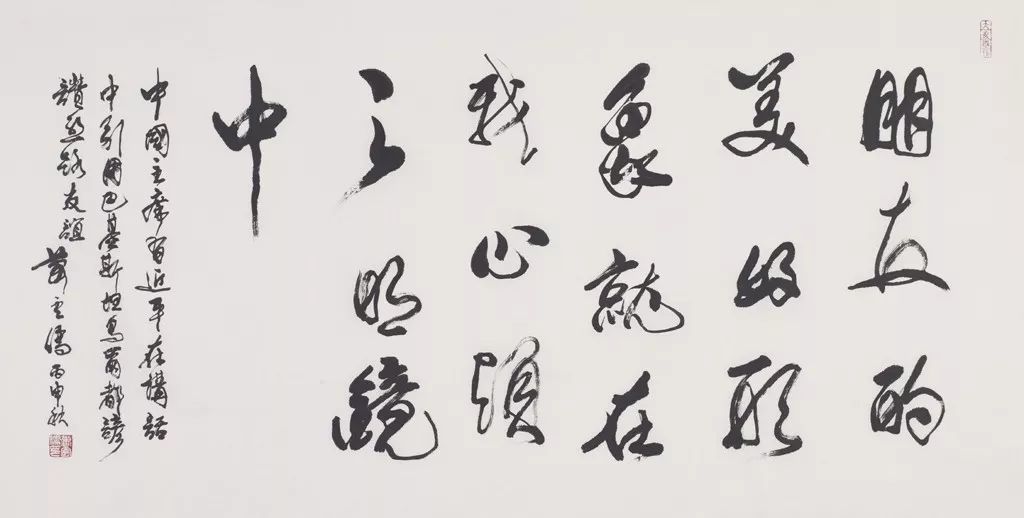 朋友的
美好形
象就在
我心頭
之明鏡
中
中國主席習近平在講話
中引用巴基斯坦烏爾都諺
讚絲路友誼
丙申秋